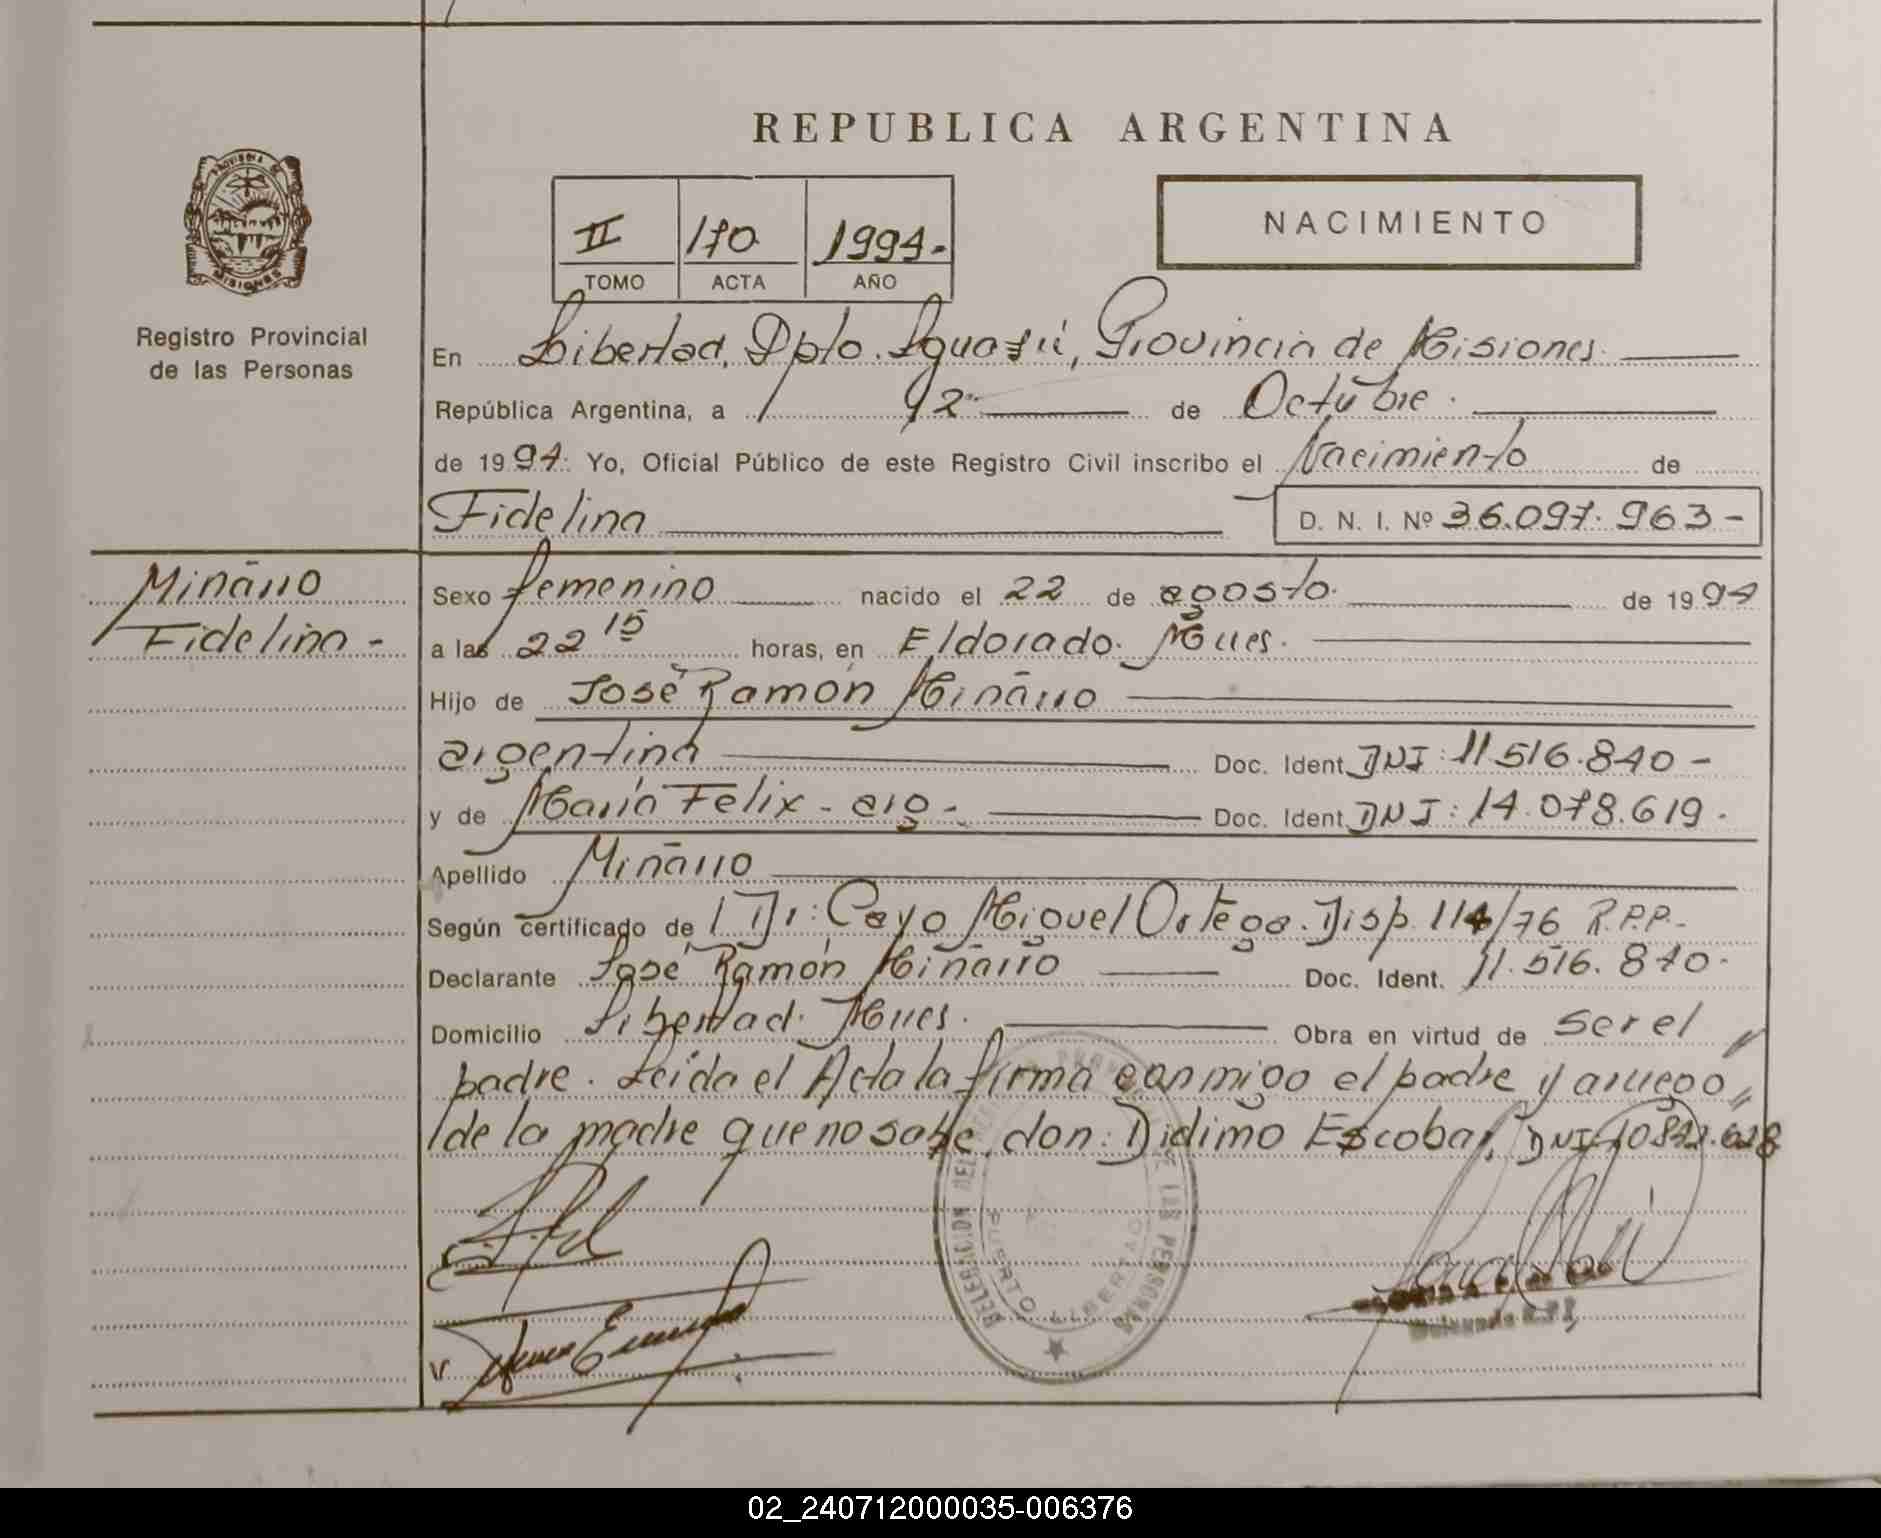 REPUBLICA ARGENTINA
PROVINCIA DE
MISIONES
Registro Provincial
de las Personas
II 170 1994.-
TOMO ACTA AÑO
NACIMIENTO
En Libertad, Dpto. Iguazú, Provincia de Misiones.
República Argentina, a 12 de Octubre.
de 1994. Yo, Oficial Público de este Registro Civil inscribo el Nacimiento de
Fidelina D. N. I. Nº 36.097.963-
Miñarro
Fidelina-
Sexo femenino nacido el 22 de agosto. de 1994
a las 22 15 horas, en Eldorado. Mnes.
Hijo de José Ramón Miñarro
argentina Doc. Ident. DNI: 11.516.840-
y de María Felix - arg-. Doc. Ident. DNI: 14.078.619.
Apellido Miñarro
Según certificado de l Dr: Cayo Miguel Ortega. Disp. 114/76 R.P.P.-
Declarante José Ramón Miñarro Doc. Ident. 11.516.840.
Domicilio Libertad. Mnes. Obra en virtud de ser el
padre. Leída el Acta la firma conmigo el padre y a ruego
de la madre que no sabe, don: Didimo Escobar, DNI
DELEGACION DEL REGISTRO PROVINCIAL DE LAS PERSONAS
PUERTO LIBERTAD
Delegada R.P.P.
02_240712000035-006376